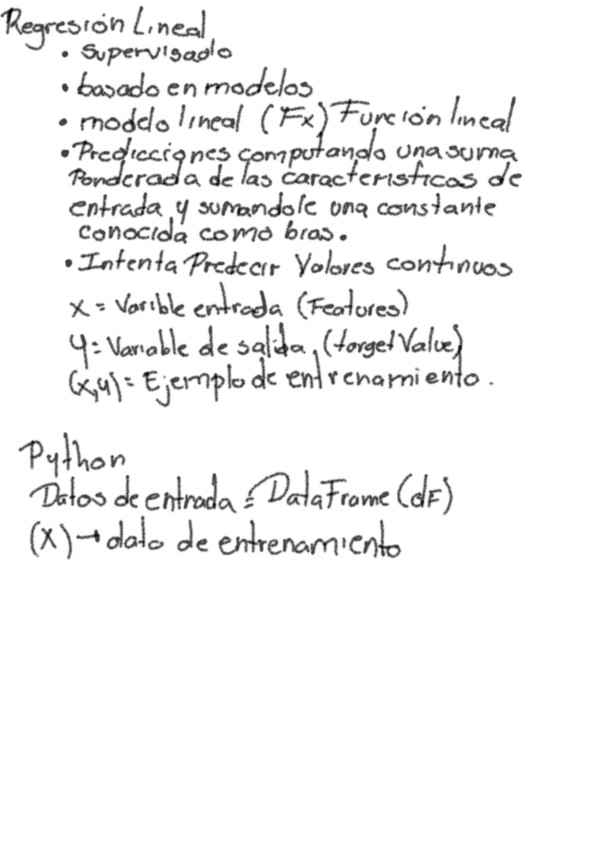 Regresión Lineal
• Supervisado
• basado en modelos
• modelo lineal (Fx) Función lineal
• Predicciones computando una suma
Ponderada de las características de
entrada y sumandole una constante
conocida como bias.
• Intenta Predecir Valores continuos
x = Varible entrada (Features)
y = Variable de salida (target Value)
(x,y) = Ejemplo de entrenamiento.
Python
Datos de entrada = DataFrame (dF)
(X) → dato de entrenamiento